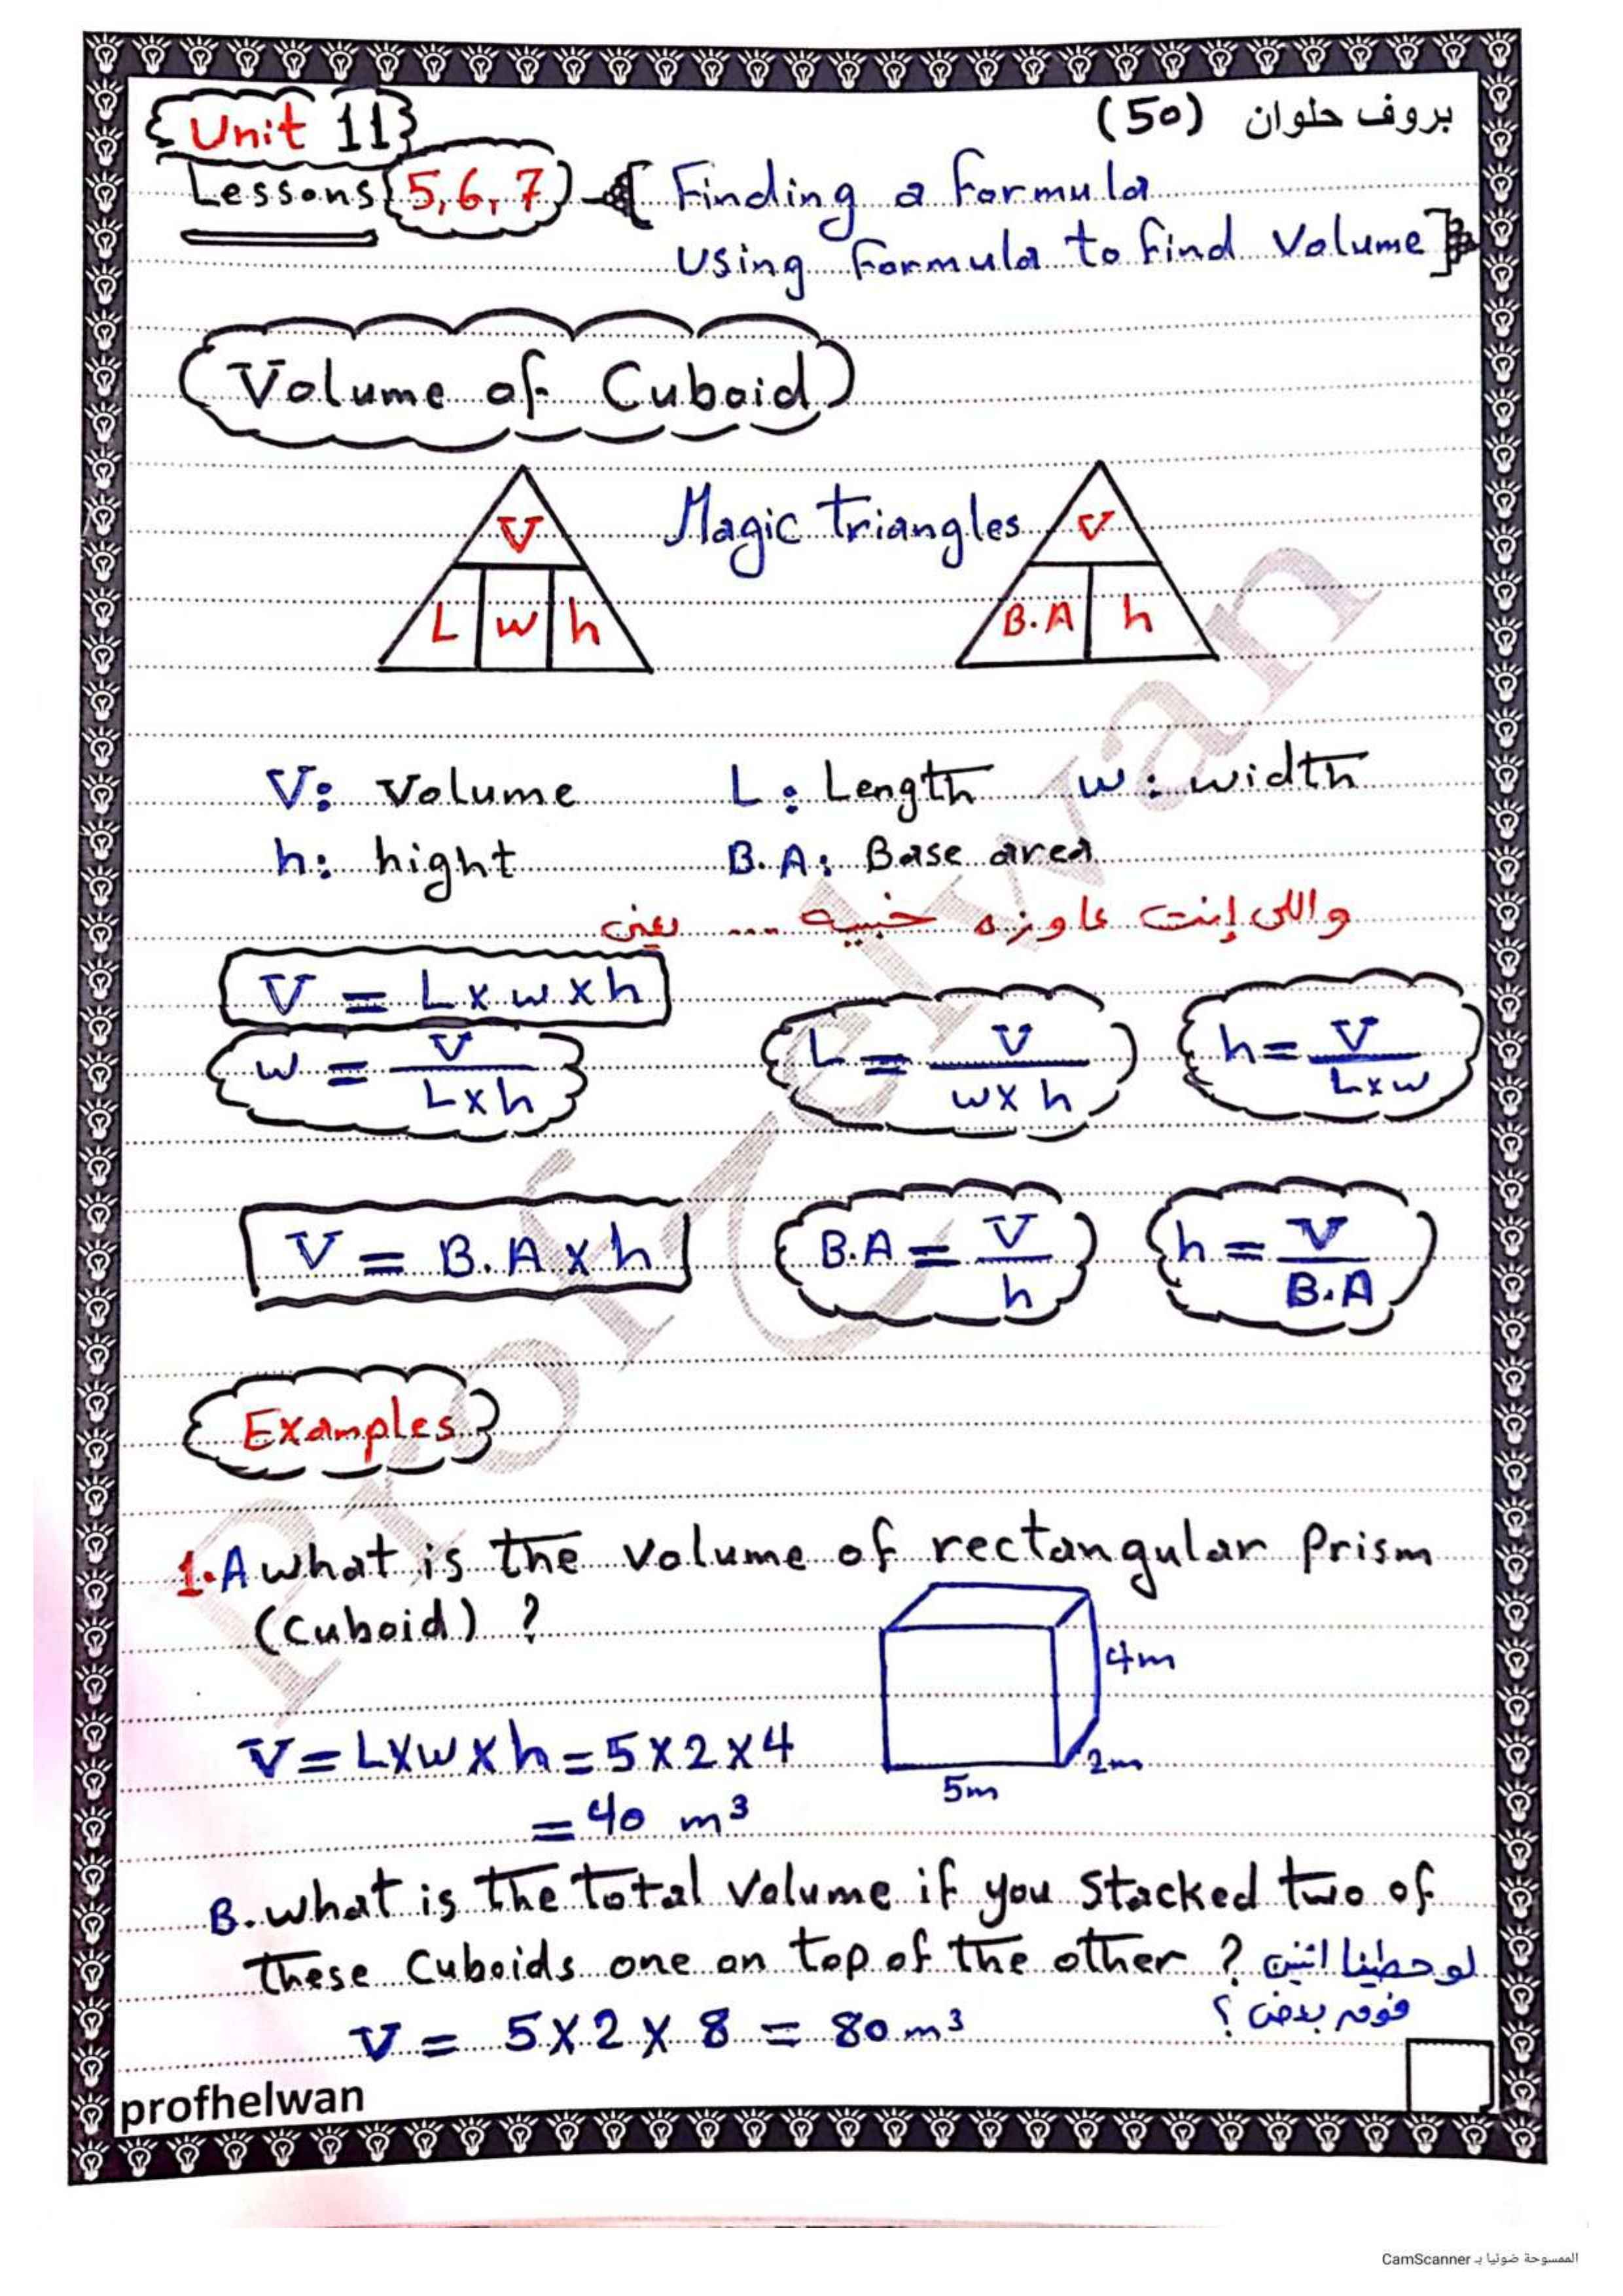 Unit 11
بروف حلوان (50)
Lessons 5,6,7 [ Finding a formula
Using formula to find volume ]
Volume of Cuboid
Magic triangles
V
L w h
V
B.A h
V: Volume L: Length w: width
h: hight B.A: Base area
واللى إنت عاوزه خبيه ... يعنى
V = L x w x h
w = V / L x h
L = V / w x h
h = V / L x w
V = B.A x h
B.A = V / h
h = V / B.A
Examples
1.A what is the volume of rectangular prism
(Cuboid) ?
4m
2m
5m
V = L x w x h = 5 x 2 x 4
= 40 m³
B. what is the total volume if you stacked two of
these Cuboids one on top of the other ? لو حطينا اتنين
فوق بعض ؟
V = 5 x 2 x 8 = 80 m³
profhelwan
Prof Helwan
الممسوحة ضوئيا بـ CamScanner